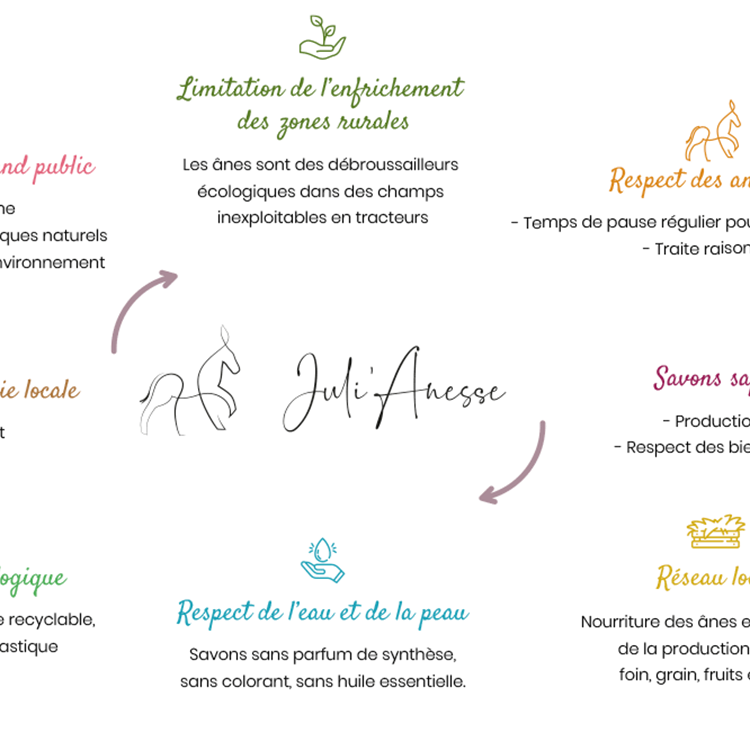 Limitation de l'enfrichement
des zones rurales
Les ânes sont des débroussailleurs
écologiques dans des champs
inexploitables en tracteurs
Respect des
- Temps de pause régulier
- Traite
public
naturels
Juli'Anesse
locale
Savons
-
- Respect des
Respect de l'eau et de la peau
Savons sans parfum de synthèse,
sans colorant, sans huile essentielle.
recyclable,
Réseau
Nourriture des ânes
de la production
foin, grain, fruits